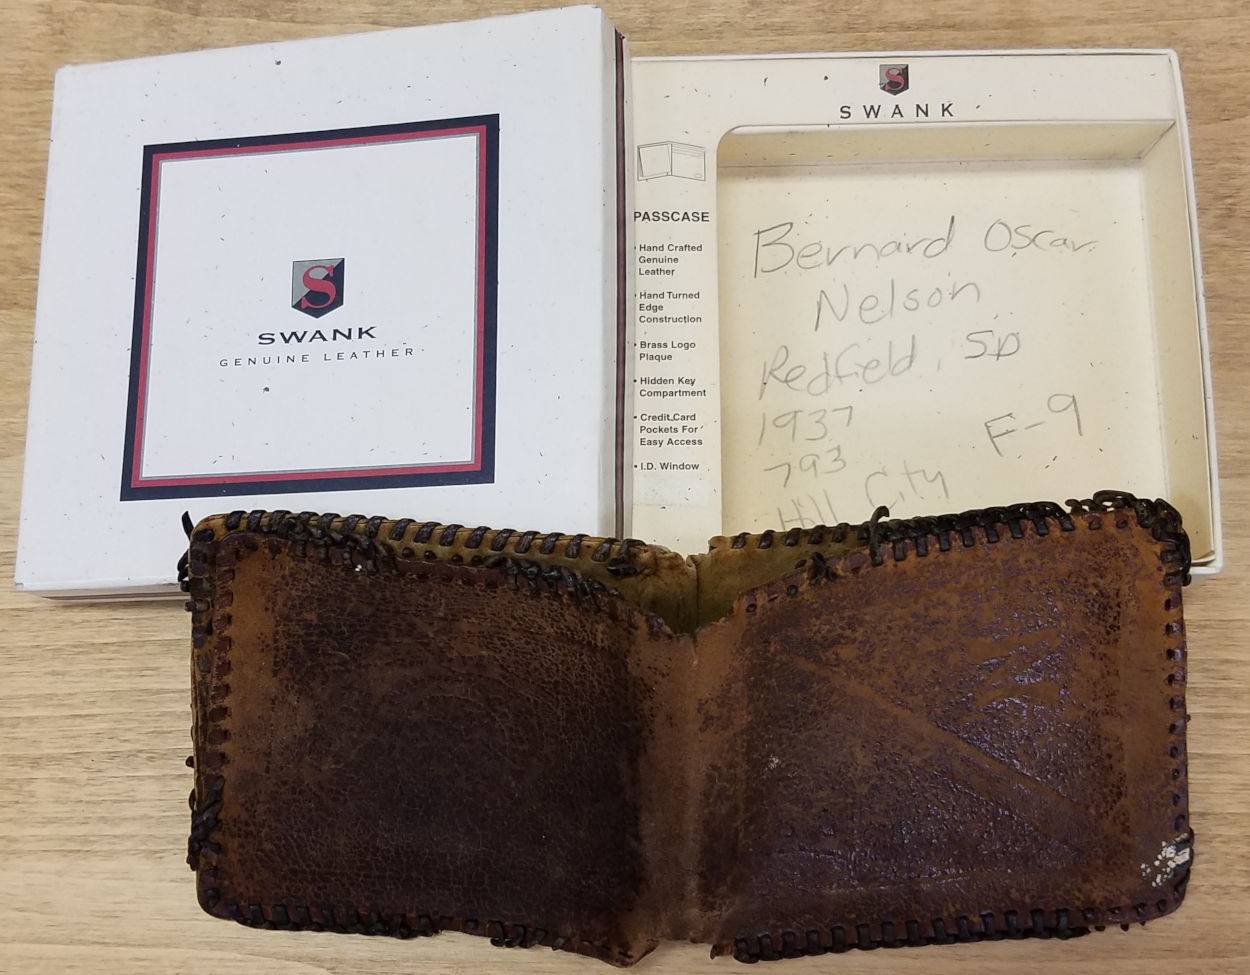 S
SWANK
GENUINE LEATHER
S
SWANK
PASSCASE
• Hand Crafted
Genuine
Leather
• Hand Turned
Edge
Construction
• Brass Logo
Plaque
• Hidden Key
Compartment
• Credit Card
Pockets For
Easy Access
• I.D. Window
Bernard Oscar
Nelson
Redfield, SD
1937
F-9
793
Hill City